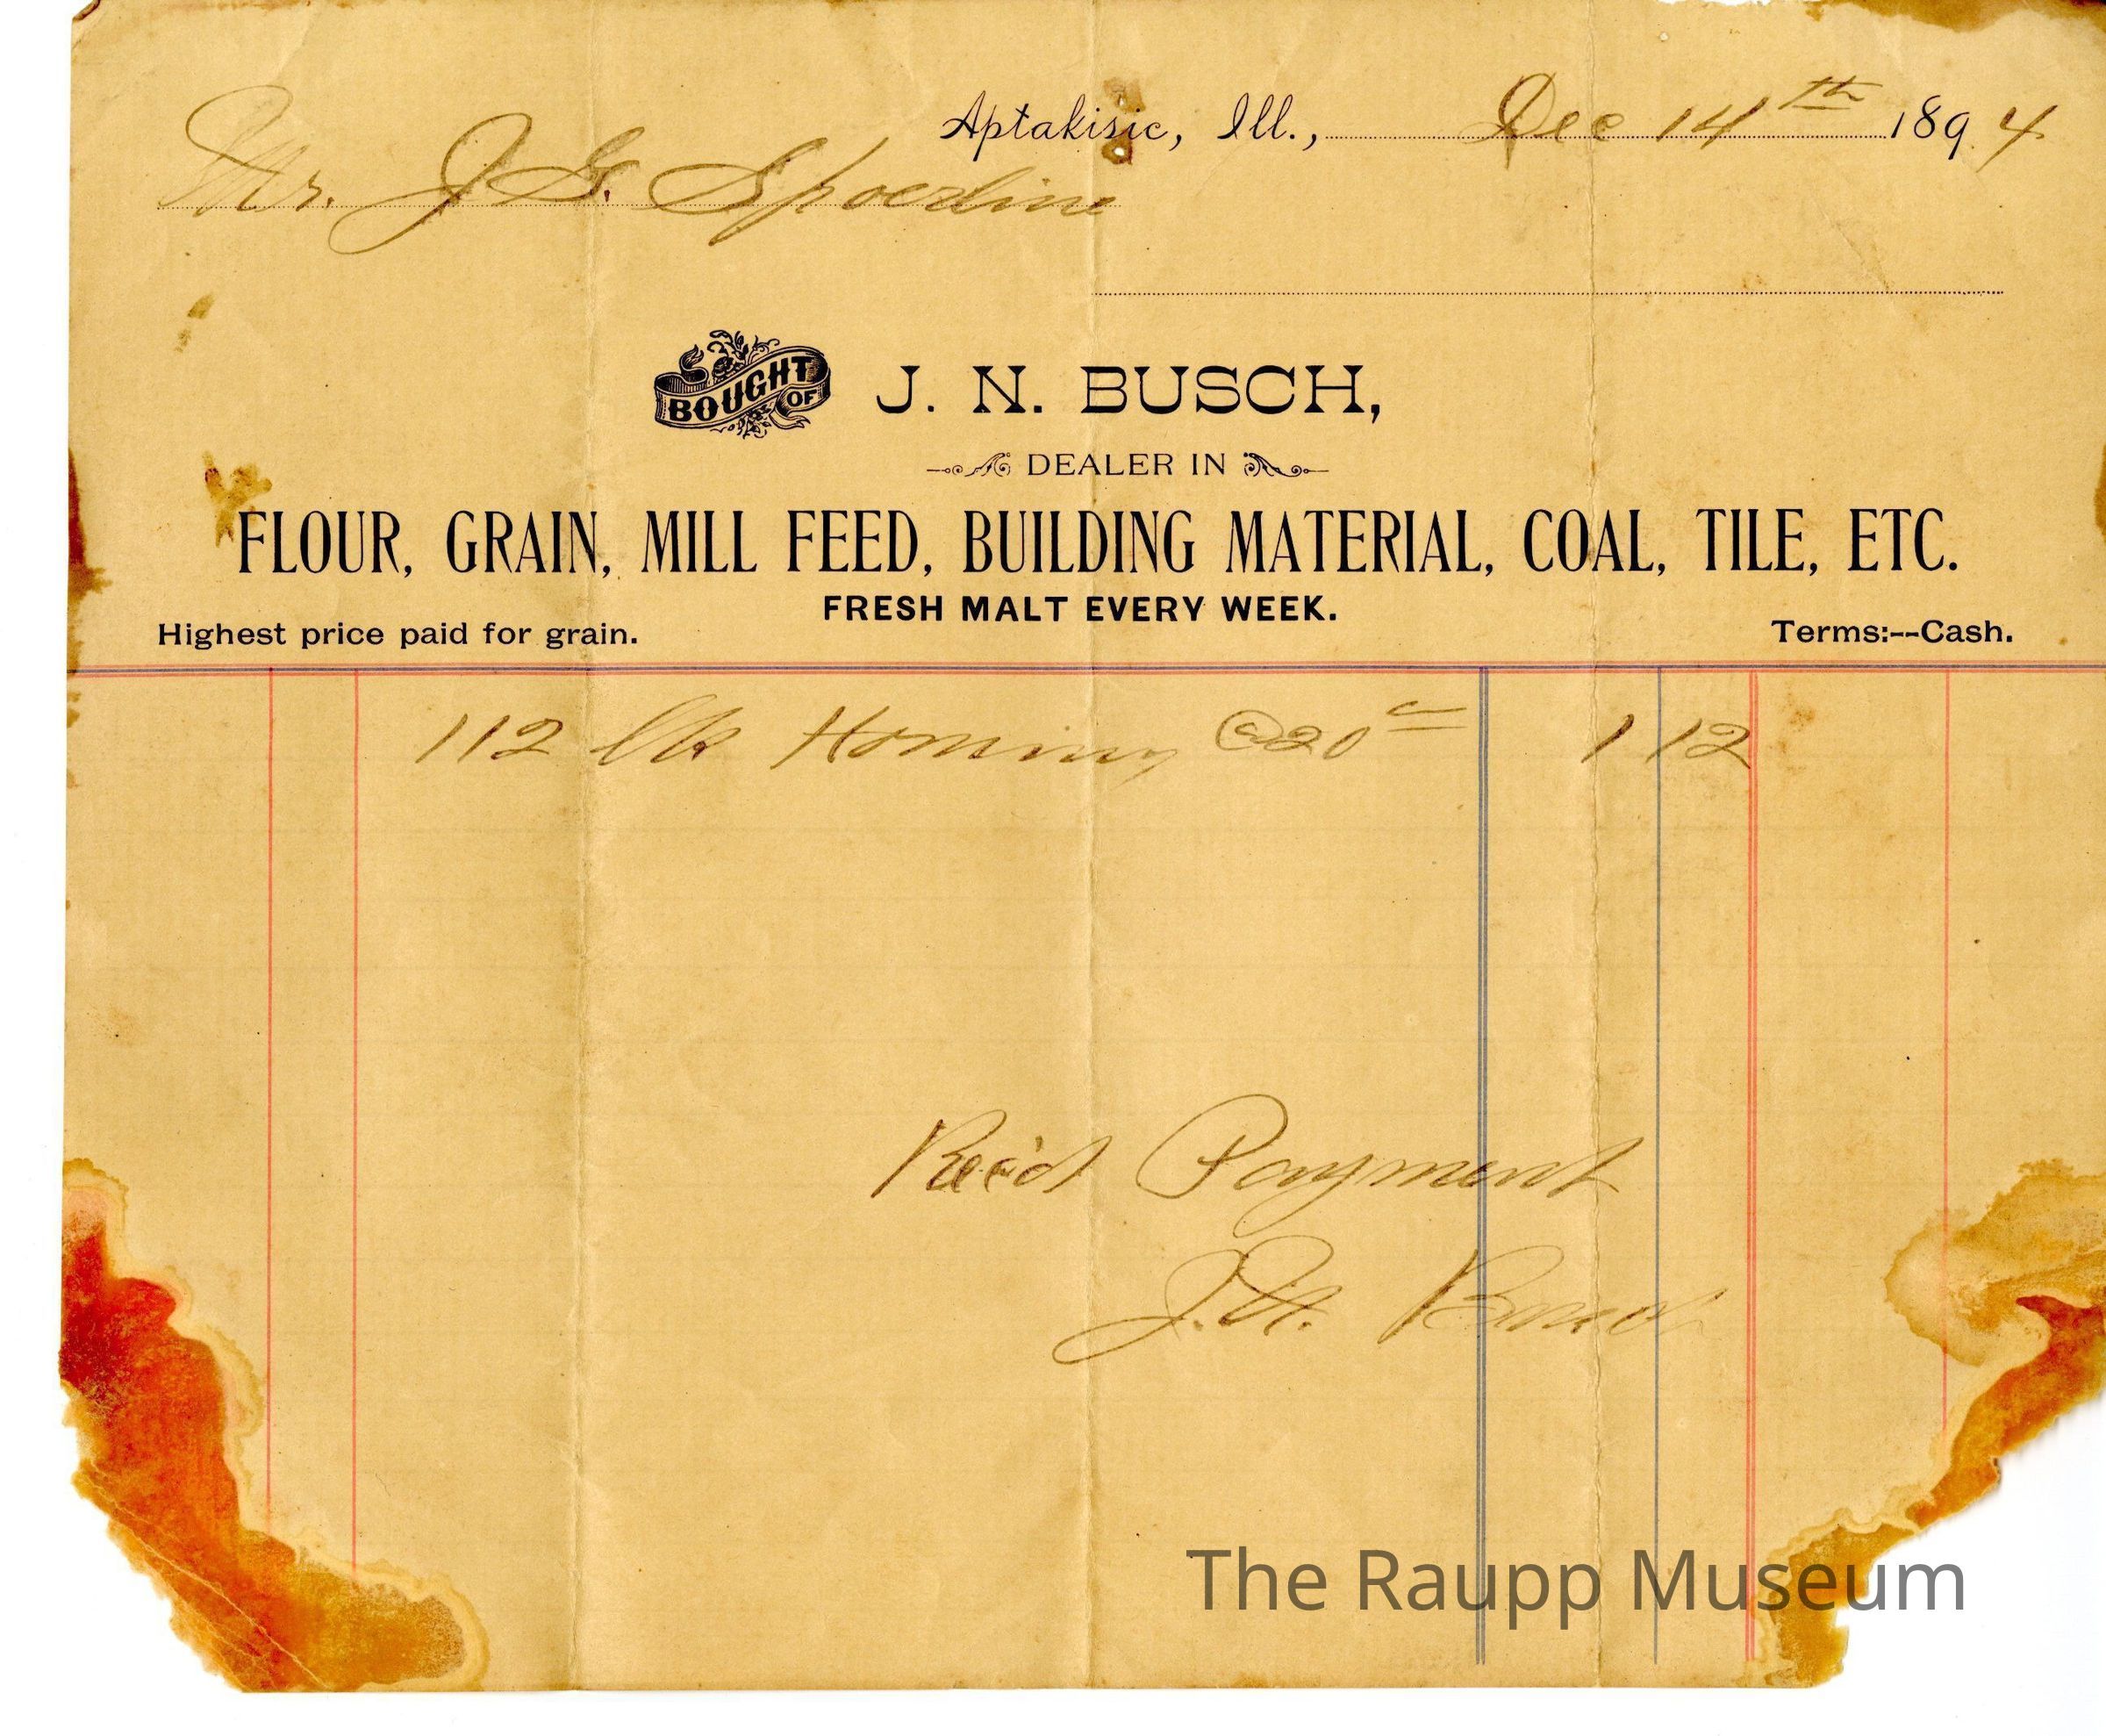 Aptakisic, Ill., Dec 14th 1894
Mr. J G. Spoerline
BOUGHT OF J. N. BUSCH,
DEALER IN
FLOUR, GRAIN, MILL FEED, BUILDING MATERIAL, COAL, TILE, ETC.
FRESH MALT EVERY WEEK.
Highest price paid for grain. Terms:--Cash.
112 lbs Hominy @ 20c 1 12
Rec'd Payment
J.N. Busch
The Raupp Museum